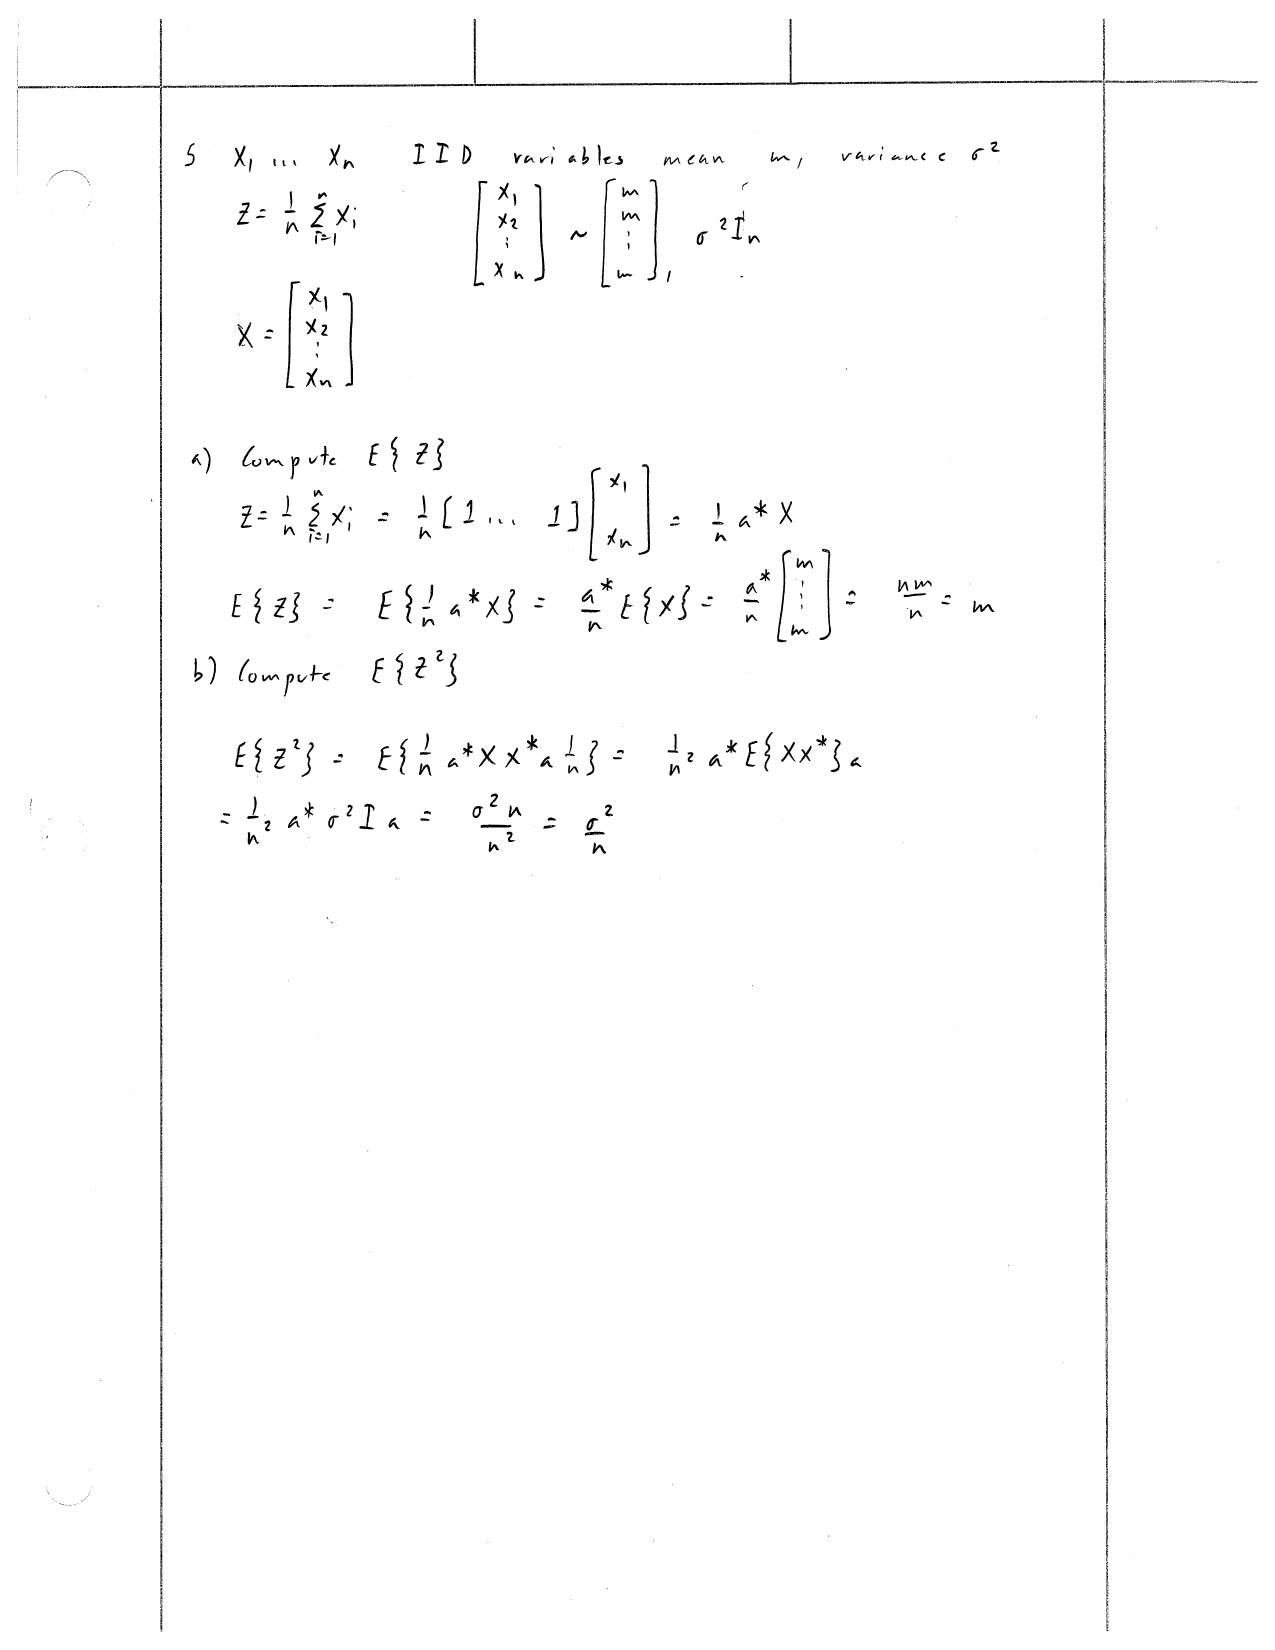 5 X₁ ... Xₙ IID variables mean m, variance σ²
Z = 1/n Σᵢ₌₁ⁿ Xᵢ [X₁ X₂ ⋮ Xₙ] ~ [m m ⋮ m], σ²Iₙ
X = [X₁ X₂ ⋮ Xₙ]
a) Compute E{Z}
Z = 1/n Σᵢ₌₁ⁿ Xᵢ = 1/n [1 ... 1] [X₁ Xₙ] = 1/n a* X
E{Z} = E{1/n a* X} = a*/n E{X} = a*/n [m ⋮ m] = nm/n = m
b) Compute E{Z²}
E{Z²} = E{1/n a* X X* a 1/n} = 1/n² a* E{XX*} a
= 1/n² a* σ² I a = σ²n/n² = σ²/n